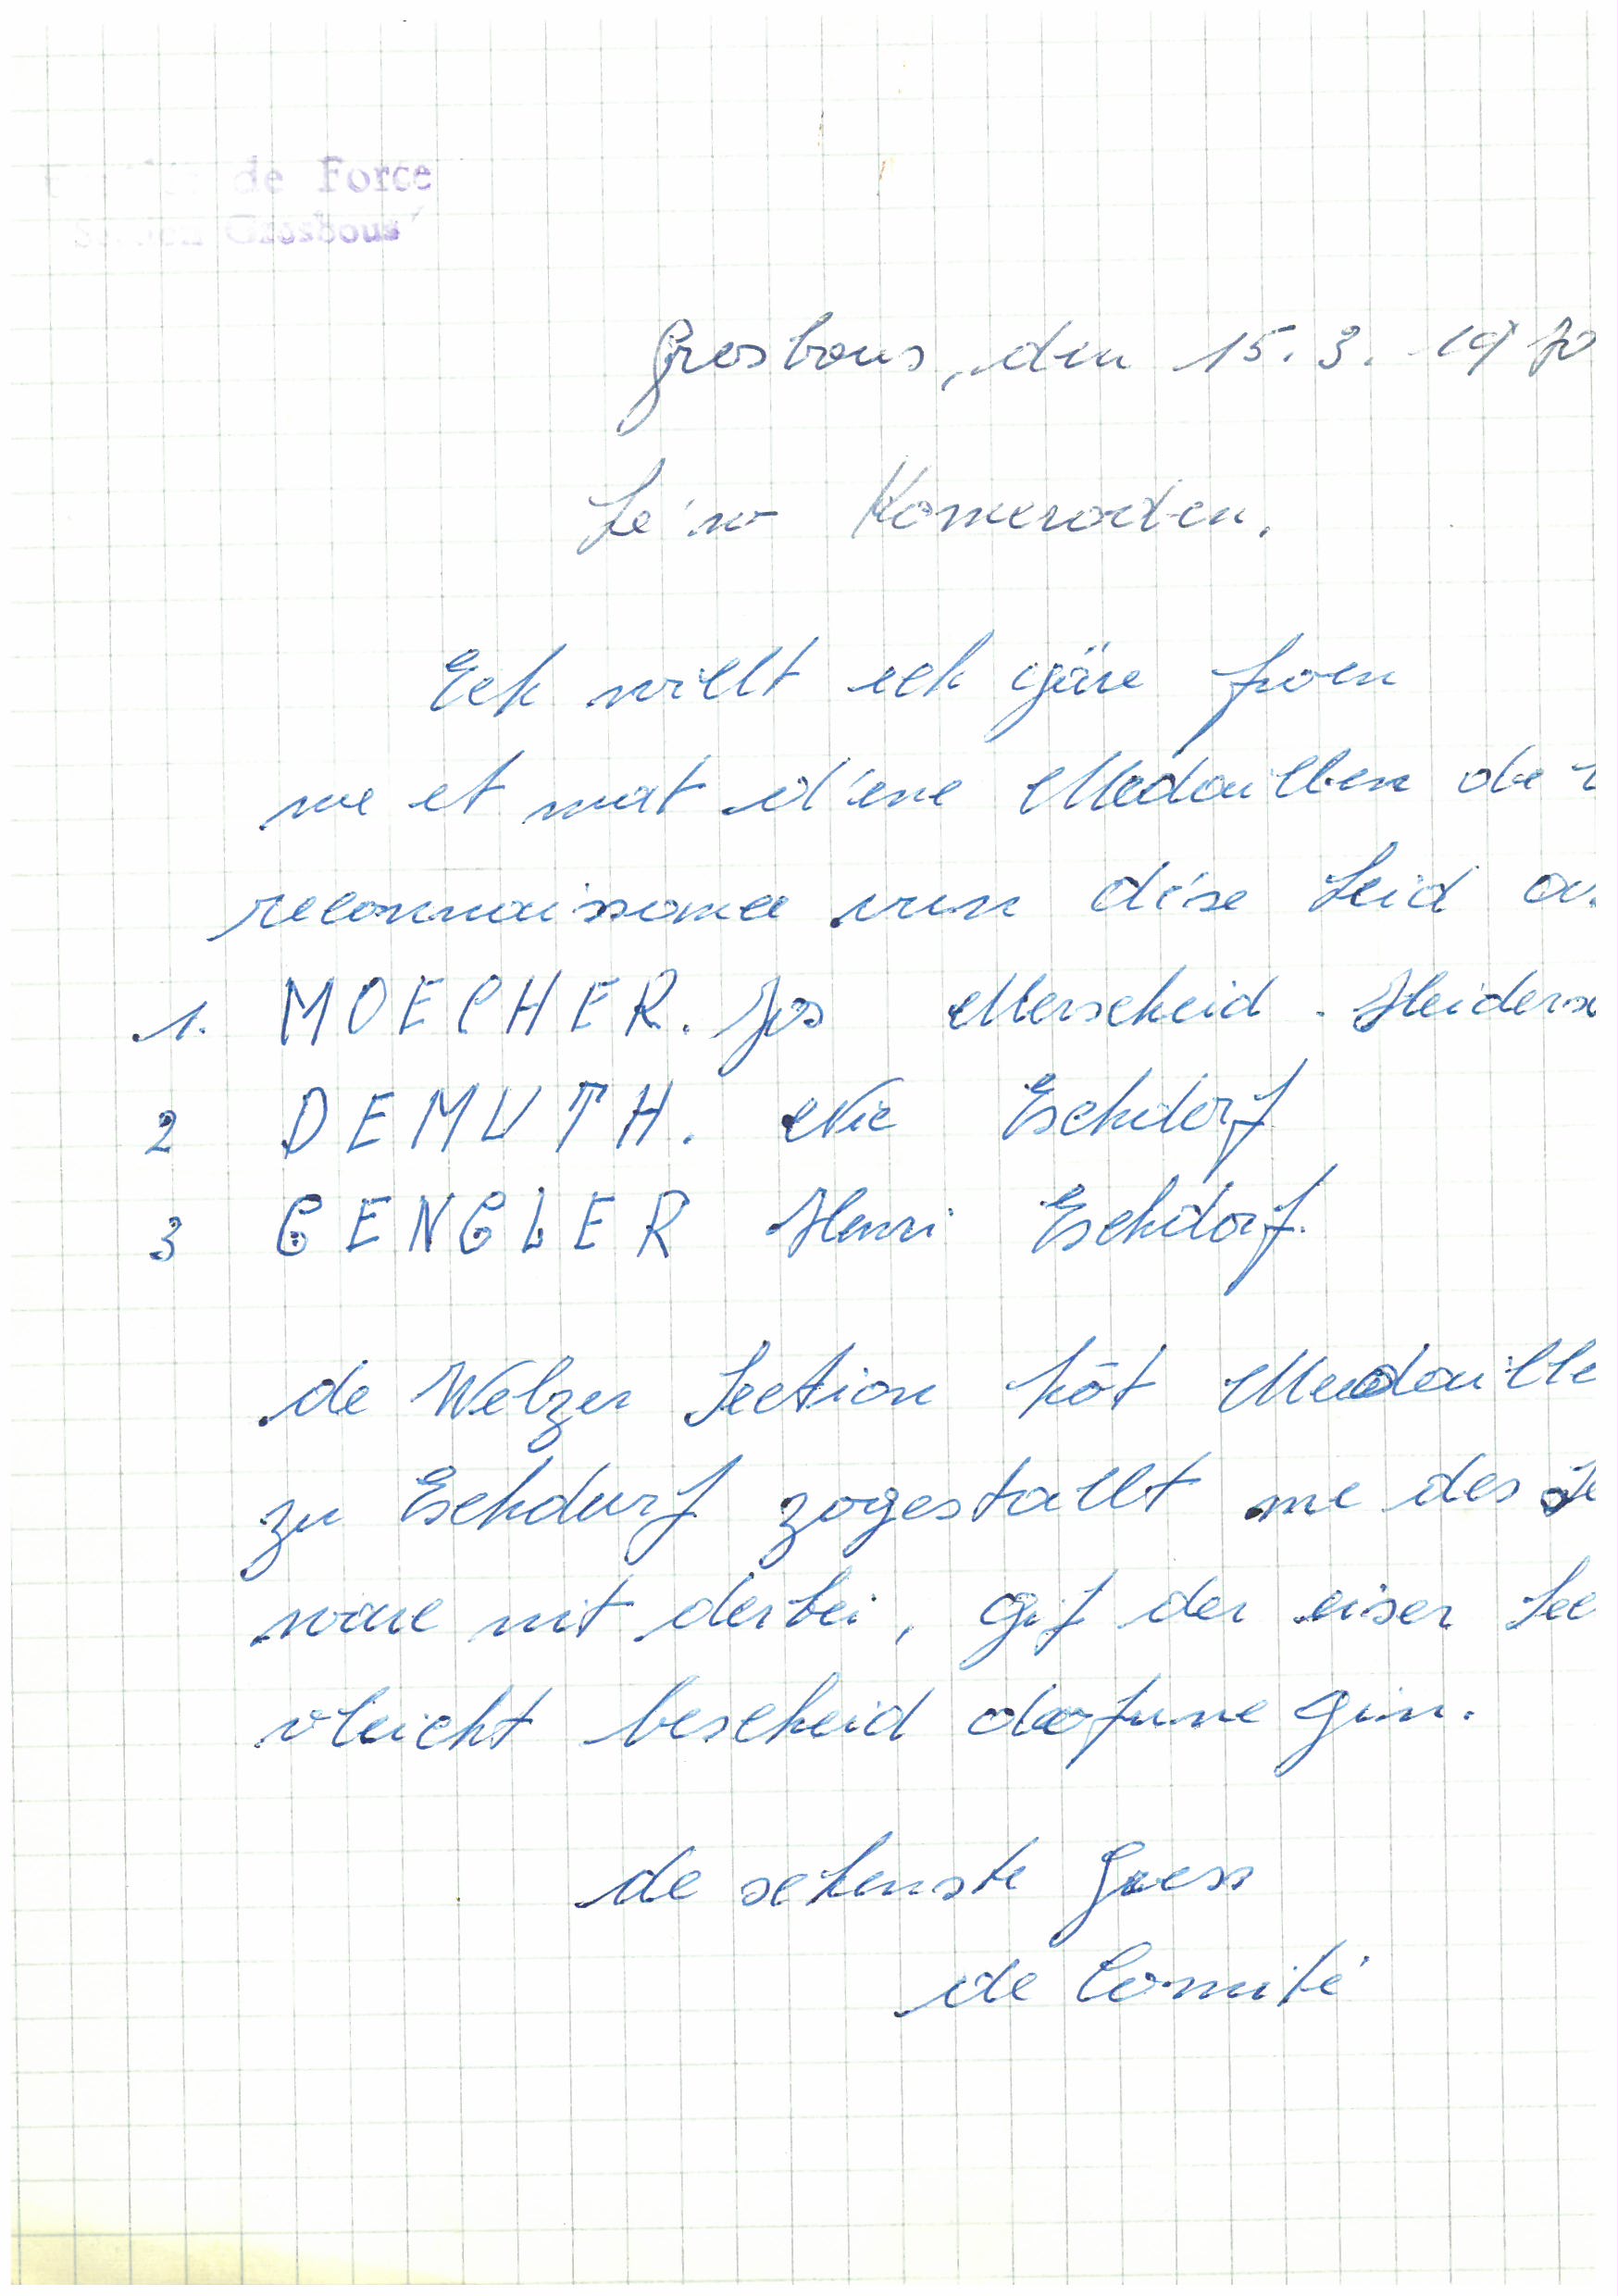 de Force
Section Grosbous
Grosbous, den 15. 3. 1970
Le'w Komeroden.
Eck willt ech gäre froen
we et mat d'ene Medaillen de
reconnaissance vun dése Leid
1. MOECHER. Jos Merscheid - Heidersc
2 DEMUTH. Nic Eschdorf
3 GENGLER Henri Eschdorf.
de Welzer Section hôt Medaille
zu Eschdurf zogestallt me des
ware nit derbei, gif der eiser Sec
vleicht bescheid dofune gin.
de schenste Gress
de Comité